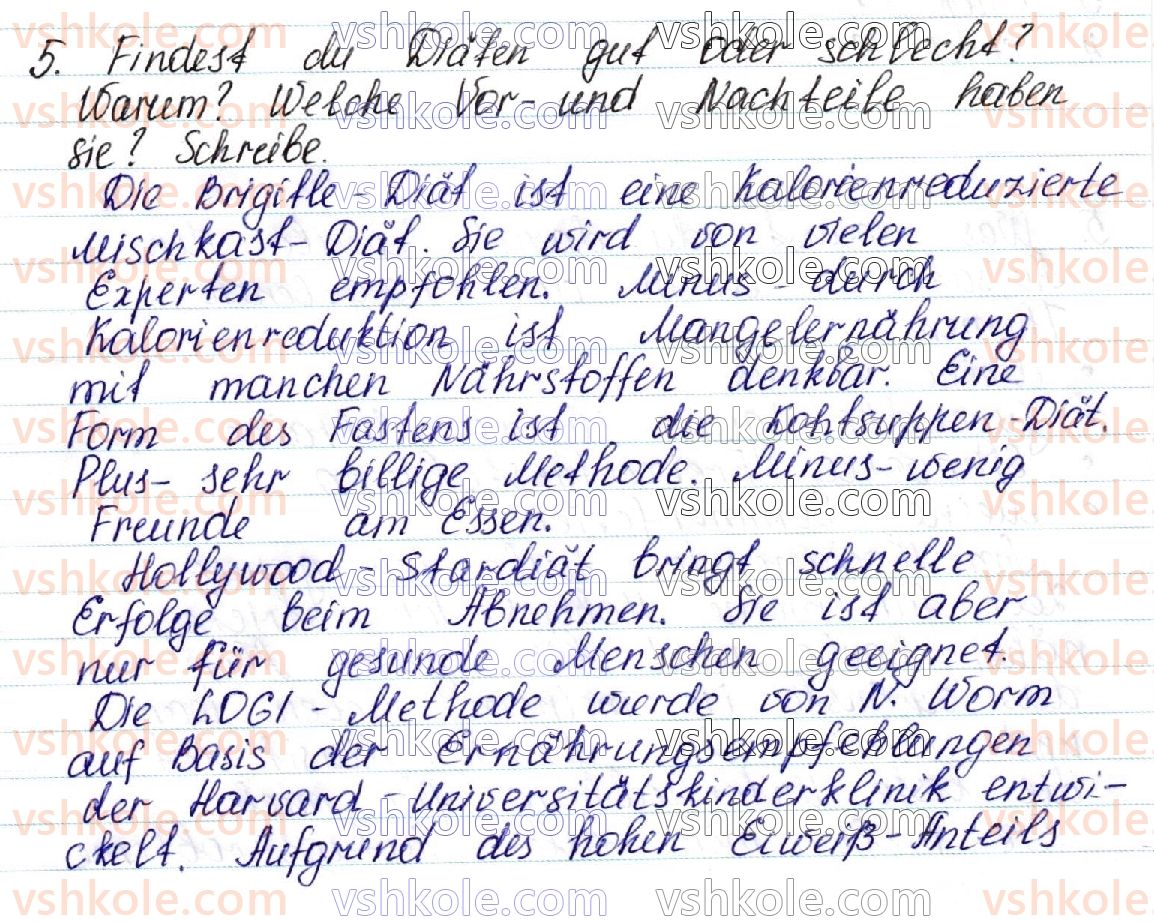 5. Findest du Diäten gut oder schlecht?
Warum? Welche Vor- und Nachteile haben
sie? Schreibe.
Die Brigitte-Diät ist eine kalorienreduzierte
Mischkost-Diät. Sie wird von vielen
Experten empfohlen. Minus - durch
Kalorienreduktion ist Mangelernährung
mit manchen Nährstoffen denkbar. Eine
Form des Fastens ist die Kohlsuppen-Diät.
Plus- sehr billige Methode. Minus- wenig
Freunde am Essen.
Hollywood - Stardiät bringt schnelle
Erfolge beim Abnehmen. Sie ist aber
nur für gesunde Menschen geeignet.
Die LOGI - Methode wurde von N. Worm
auf Basis der Ernährungsempfehlungen
der Harvard - Universitätskinderklinik entwi-
ckelt. Aufgrund des hohen Eiweiß-Anteils